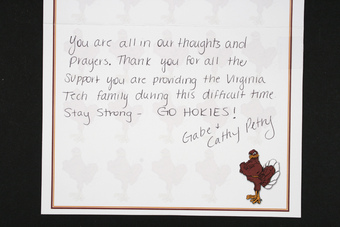 You are all in our thoughts and
prayers. Thank you for all the
support you are providing the Virginia
Tech family during this difficult time
Stay Strong - GO HOKIES!
Gabe +
Cathy Petry